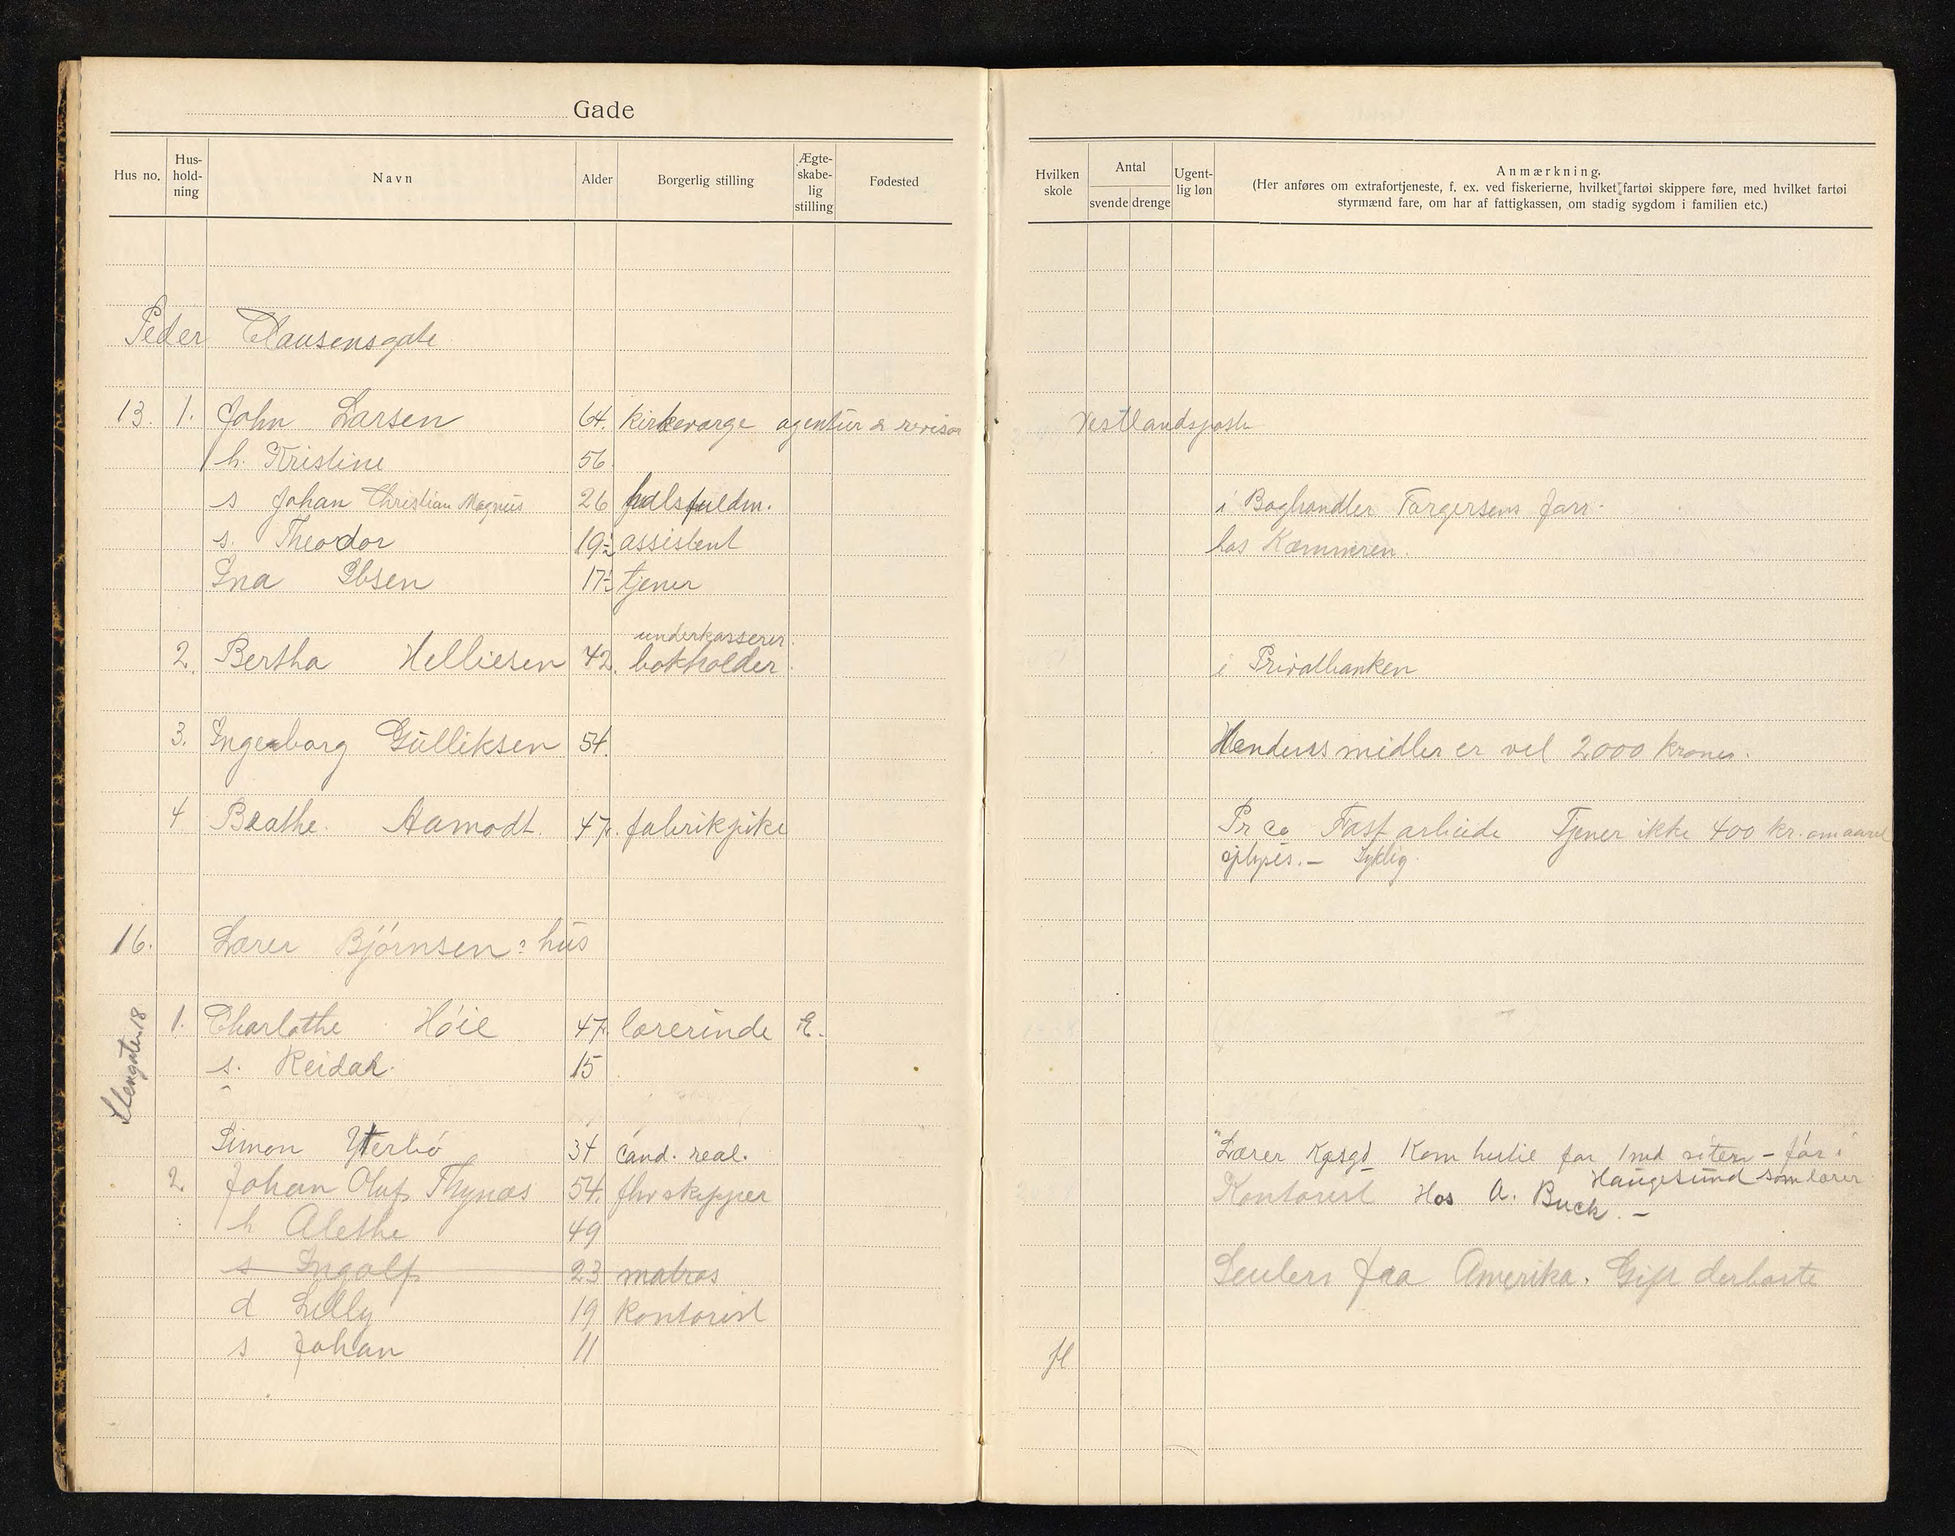 Gade
Hus no. Hus-hold-ning Navn Alder Borgerlig stilling Ægte-skabe-lig stilling Fødested Hvilken skole Antal svende drenge Ugent-lig løn Anmærkning.
(Her anføres om extrafortjeneste, f. ex. ved fiskerierne, hvilket fartøi skippere føre, med hvilket fartøi
styrmænd fare, om har af fattigkassen, om stadig sygdom i familien etc.)
Peder Clausensgate
13. 1. John Larsen 64. kirkeværge agentur & revisor Vestlandsposten
h. Kristine 56.
s Johan Christian Magnus 26 fuldm. i Boghandler Torgersens forr.
s. Theodor 19½ assistent hos Kæmneren.
Ina Ibsen 17½ tjener
underkasserer.
2. Bertha Helliesen 42. bokholder. i Privatbanken
3. Ingeborg Gulliksen 54. Hendes midler er vel 2000 kroner.
4 Beathe. Aamodt. 47. fabrikpike Pr Co Fast arbeide Tjener ikke 400 kr. om aaret
oplyses. – Syklig.
16. Lærer Bjørnsen's hus
Stengaten 18
1. Charlothe Høie 47. lærerinde E.
s. Reidar. 15
Simon Ytterbø 34 cand. real. Lærer Kgsgd Kom hertil for 1 md siden – før i
Haugesund som lærer
2. Johan Oluf Thynæs 54. fhv skipper Kontorist Hos A. Buck. –
h Alethe 49
s Ingolf 23 matros faa Amerika. Gift derborte
d Lilly 19 kontorist
s Johan 11 fl